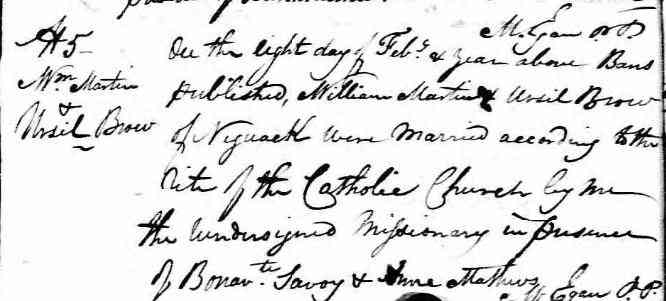 M. Egan P.P.
H5
Wm Martin
&
Ursil Brow
On the eight day of Feby & year above Bans
published, William Martin & Ursil Brow
of Niguack were married according to the
rite of the Catholic Church by me
the undersigned Missionary in presence
of Bonavte Savoy & Anne Mathews
M. Egan P.P.